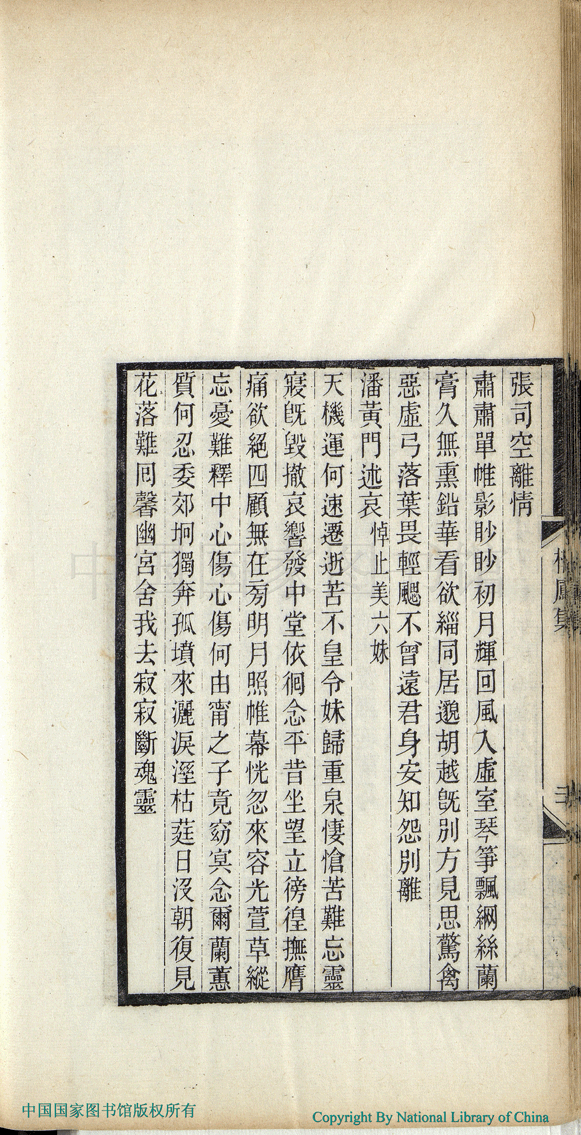 張司空離情
肅肅單帷影眇眇初月輝回風入虛室琴箏飄網絲蘭
膏久無熏鉛華看欲緇同居邈胡越旣別方見思驚禽
惡虛弓落葉畏輕颸不曾遠君身安知怨別離
潘黃門述哀悼止美六妹
天機運何速遷逝苦不皇令妹歸重泉悽愴苦難忘靈
寢旣毀撤哀響發中堂依徊念平昔坐望立徬徨撫膺
痛欲絕四顧無在旁明月照帷幕恍忽來容光萱草縱
忘憂難釋中心傷心傷何由甯之子竟窈冥念爾蘭蕙
質何忍委郊坰獨奔孤墳來灑淚溼枯莛日沒朝復見
花落難囘馨幽宮舍我去寂寂斷魂靈
中国国家图书馆版权所有
Copyright By National Library of China